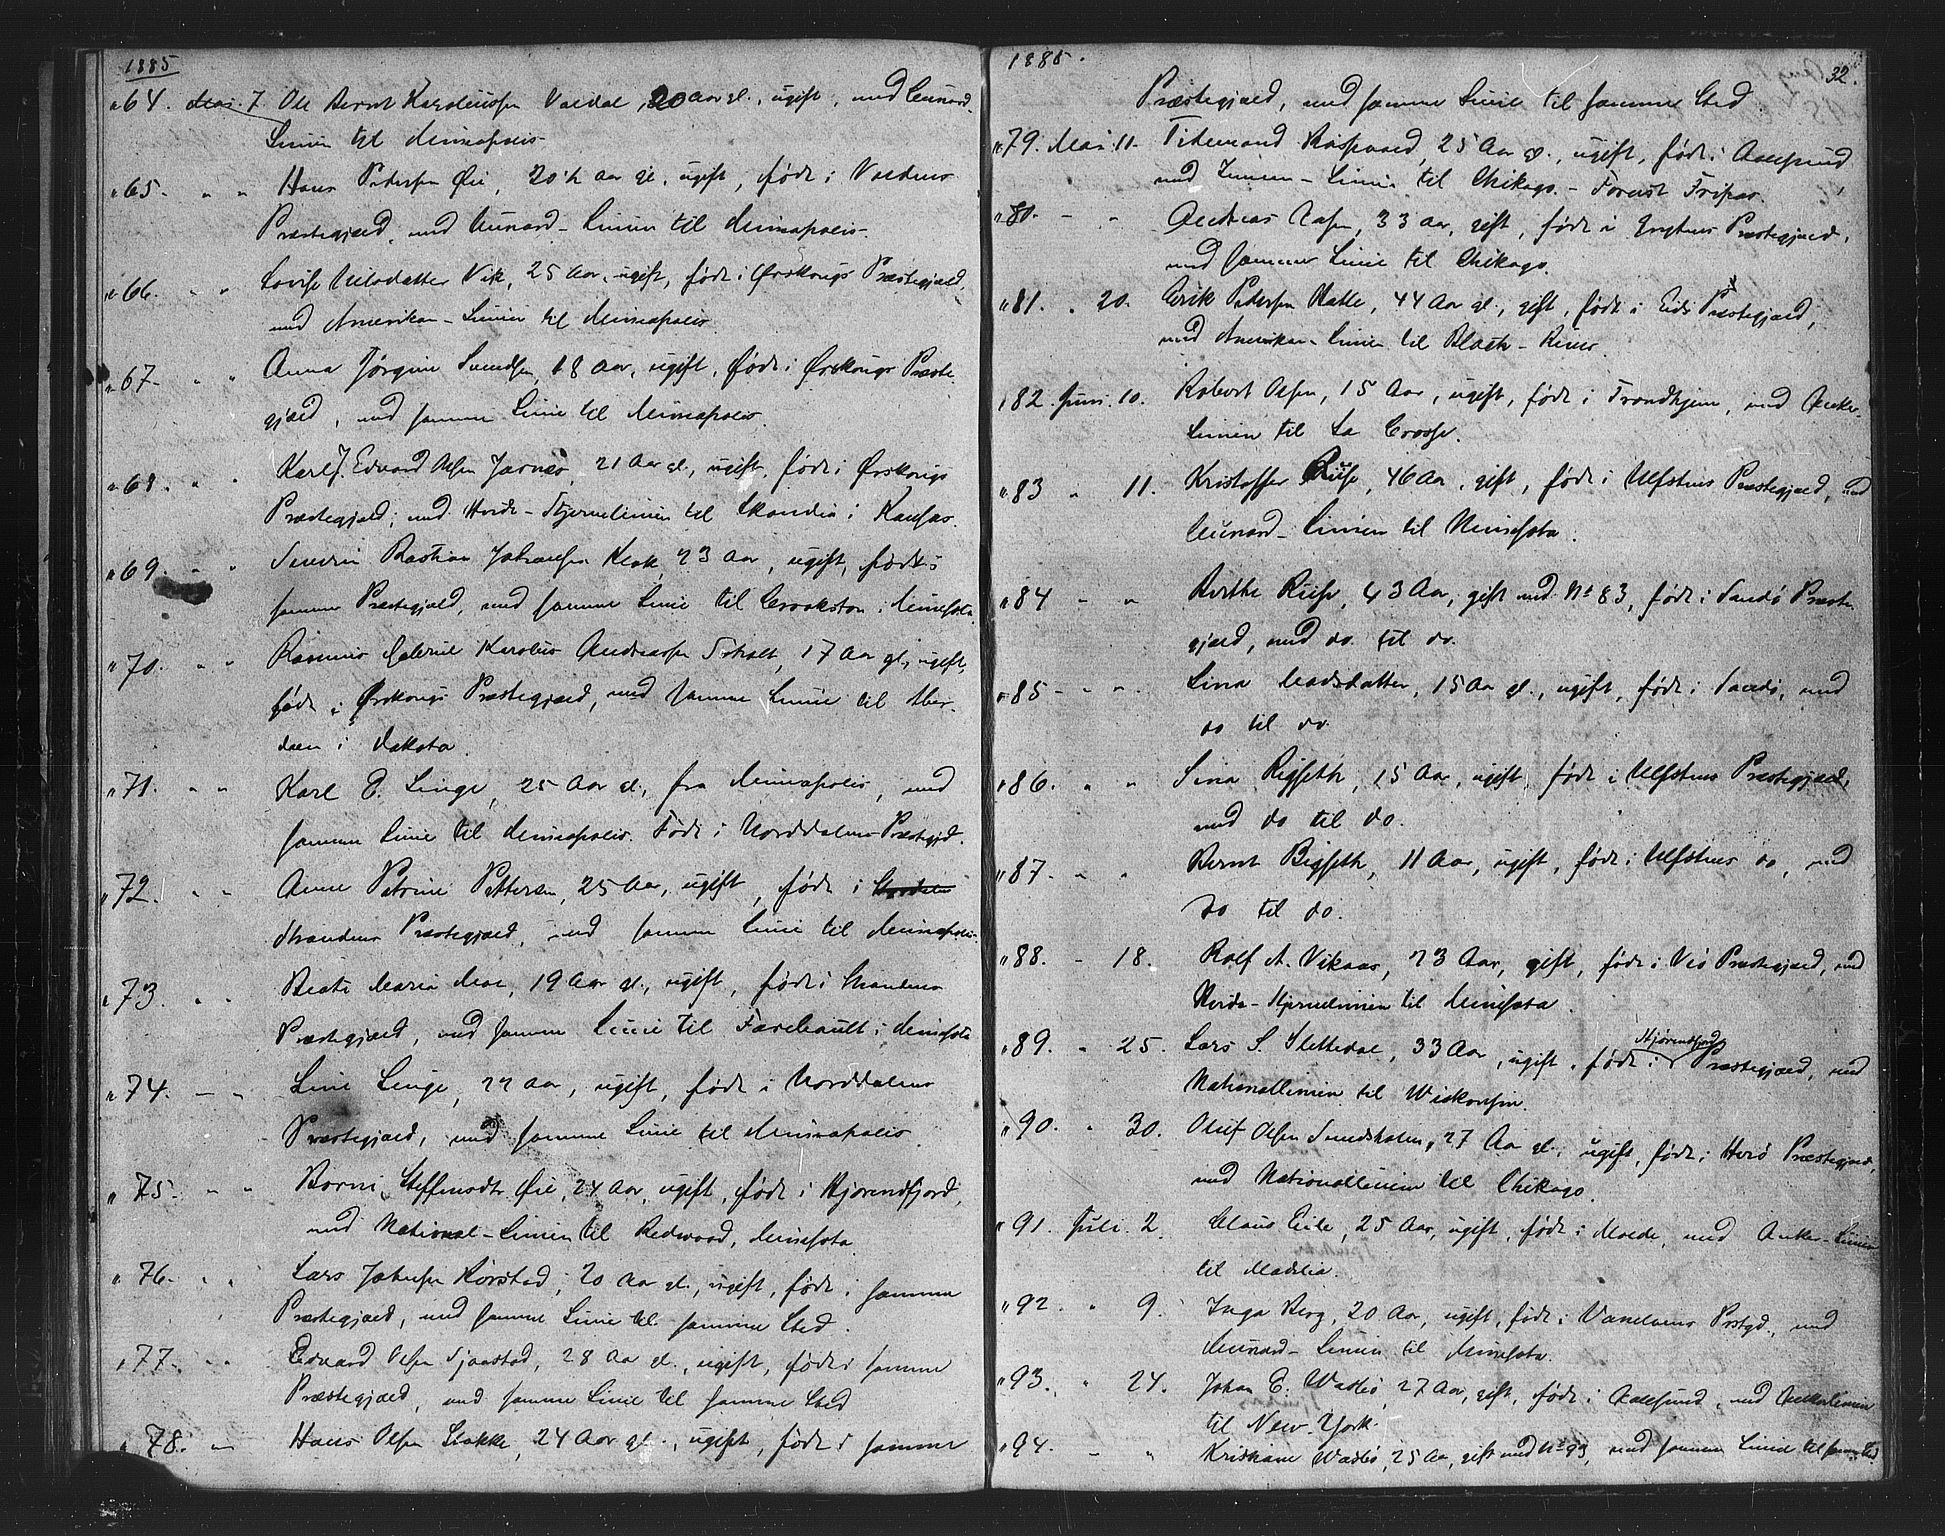 1885
" 64. Mai. 7 Ole Bernt Karoliussen Valdal, 20 Aar gl., ugift, med Cunard-
Linien til Minneapolis
" 65. " " Hans Pedersen Øie, 20½ Aar gl., ugift, født i Voldens
Præstegjæld, med Cunard-Linien til Minneapolis.
" 66. " " Lovise Nilsdatter Vik, 25 Aar, ugift, født i Ørskougs Præstegjæld,
med Amerikan-Linien til Minneapolis.
" 67. " " Anna Jørgine Svendsen, 18 Aar, ugift, født i Ørskougs Præste-
gjæld, med samme Linie til Minneapolis.
" 68. " " Karl J. Edvard Olsen Jarnes, 21 Aar gl., ugift, født i Ørskougs
Præstegjæld, med Hvide-Stjernelinien til Skandia i Kansas.
" 69. " " Severin Bastian Johansen Klok, 23 Aar, ugift, født i
samme Præstegjæld, med samme Linie til Crookston i Minnesota.
" 70. " " Rasmus Gabriel Karolius Andreassen 17 Aar gl., ugift,
født i Ørskougs Præstegjæld, med samme Linie til Aber-
deen i Dakota.
" 71. " " Karl E. Linge, 25 Aar gl., fra Minneapolis, med
samme Linie til Minneapolis. Født i Norddalens Præstegjd.
" 72. " " Anne Petrine Pettersen, 25 Aar, ugift, født i
Strandens Præstegjæld, med samme Linie til Minneapolis.
" 73. " " Beate Marie Moe, 19 Aar gl., ugift, født i Strandens
Præstegjæld, med samme Linie til Faribault i Minnesota
" 74. — " Line Linge, 22 Aar, ugift, født i Norddalens
Præstegjæld, med samme Linie til Minneapolis.
" 75. " " Borni Steffensdtr Øie, 24 Aar, ugift, født i Hjørendfjord,
med National-Linien til Redwood, Minnesota.
" 76. " " Lars Johnsen Rørstad, 20 Aar gl., ugift, født i samme
Præstegjæld, med samme Linie til samme Sted.
" 77. " " Edvard Olsen Sjaastad, 28 Aar gl., ugift, født i samme
Præstegjæld, med samme Linie til samme Sted
" 78. " — Hans Olsen Stokke, 24 Aar gl., ugift, født i samme
1885.
32.
Præstegjæld, med samme Linie til samme Sted
" 79. Mai. 11. Tidemand 25 Aar gl., ugift, født i Aalesund
med Inman-Linie til Chikago.
" 80. — " Andreas 33 Aar, gift, født i Præstegjæld,
med samme Linie til Chikago.
" 81. " 20. Erik Pedersen Hatle, 44 Aar gl., gift, født i Eids Præstegjæld,
med Amerikan-Linien til Black-River.
" 82. Juni. 10. Robert Olsen, 15 Aar, ugift, født i Trondhjem, med Anker-
Linien til La Crosse.
" 83 " 11. Kristoffer Riise, 46 Aar, gift, født i Ulfstens Præstegjæld, med
Cunard-Linien til Minnesota.
" 84 — " Berthe Riise, 43 Aar, gift med No 83, født i Sandø Præste-
gjæld, med do. til do.
" 85 — " " Lina Madsdatter, 15 Aar gl., ugift, født i Sandø, med
do til do.
" 86. " " Sina Rigseth, 15 Aar, ugift, født i Ulfstens Præstegjæld,
med do til do.
" 87. — " Bernt Bigseth, 11 Aar, ugift, født i Ulfstens do, med
do til do.
" 88. — 18. Rolf A. Vikaas, 23 Aar, gift, født i Vio Præstegjæld, med
Hvide-Stjernelinien til Minnesota.
" 89. " 25. Lars S. Slettedal, 33 Aar, ugift, født i Hjørendfjord Præstegjæld, med
Nationallinien til Wiskonsin.
" 90. " 30. Oluf Olsen Sundsholm, 27 Aar gl., ugift, født i Herø Præstegjæld,
med Nationallinien til Chikago.
" 91. Juli. 2. Claus Eide, 25 Aar, ugift, født i Molde, med Anker-Linien
til Madelia.
" 92. " 9. Inga Berg, 20 Aar, ugift, født i Vanelvens Prstgd., med
Cunard-Linien til Minnesota.
" 93. " 24. Johan E. Vatlø, 27 Aar, gift, født i Aalesund, med Ankerlinien
til New-York.
" 94. — " Kristiane Vatlø, 25 Aar, gift med No 93, med samme Linie til samme Sted.